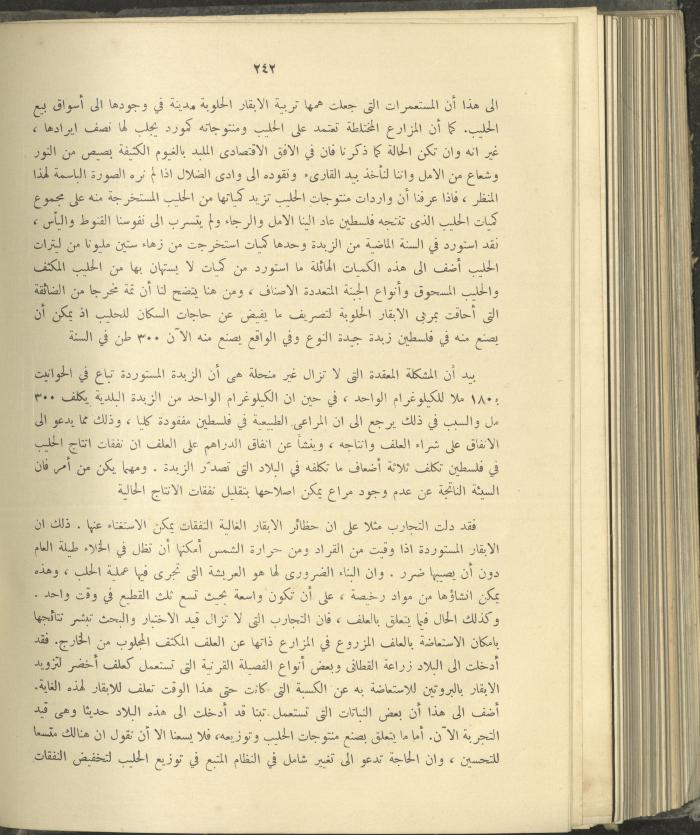 ٢٤٢
الى هذا أن المستعمرات التى جعلت همها تربية الابقار الحلوبة مدينة في وجودها الى أسواق بيع
الحليب. كما أن المزارع المختلطة تعتمد على الحليب ومنتوجاته كمورد يجلب لها نصف ايرادها ،
غير انه وان تكن الحالة كما ذكرنا فان في الافق الاقتصادى الملبد بالغيوم الكثيفة بصيص من النور
وشعاع من الامل واننا لنأخذ بيد القارىء ونقوده الى وادى الضلال اذا لم نره الصورة الباسمة لهذا
المنظر ، فاذا عرفنا أن واردات منتوجات الحليب تزيد كمياتها من الحليب المستخرجة منه على مجموع
كميات الحليب الذى تنتجه فلسطين عاد الينا الامل والرجاء ولم يتسرب الى نفوسنا القنوط واليأس ،
نقد استورد في السنة الماضية من الزبدة وحدها كميات استخرجت من زهاء ستين مليونا من ليترات
الحليب أضف الى هذه الكميات الهائلة ما استورد من كميات لا يستهان بها من الحليب المكثف
والحليب المسحوق وأنواع الجبنة المتعددة الاصناف ، ومن هنا يتضح لنا أن ثمة مخرجا من الضائقة
التى أحاقت بمربى الابقار الحلوبة لتصريف ما يفيض عن حاجات السكان للحليب اذ يمكن أن
يصنع منه في فلسطين زبدة جيدة النوع وفي الواقع يصنع منه الآن ٣٠٠ طن في السنة
بيد أن المشكلة المعقدة التى لا تزال غير منحلة هى أن الزبدة المستوردة تباع في الحوانيت
بـ ١٨٠ ملا للكيلوغرام الواحد ، في حين ان الكيلوغرام الواحد من الزبدة البلدية يكلف ٣٠٠
مل والسبب في ذلك يرجع الى ان المراعى الطبيعية في فلسطين مفقودة كليا ، وذلك مما يدعو الى
الانفاق على شراء العلف وانتاجه ، وينشأ عن انفاق الدراهم على العلف ان نفقات انتاج الحليب
في فلسطين تكلف ثلاثة أضعاف ما تكلفه في البلاد التى تصدّر الزبدة . ومهما يكن من أمر فان
السيئة الناتجة عن عدم وجود مراع يمكن اصلاحها بتقليل نفقات الانتاج الحالية
فقد دلت التجارب مثلا على ان حظائر الابقار الغالية النفقات يمكن الاستغناء عنها . ذلك ان
الابقار المستوردة اذا وقيت من القراد ومن حرارة الشمس أمكنها أن تظل في الخلاء طيلة العام
دون أن يصيبها ضرر . وان البناء الضرورى لها هو العريشة التى تجرى فيها عملية الحلب ، وهذه
يمكن انشاؤها من مواد رخيصة ، على أن تكون واسعة بحيث تسع ثلث القطيع في وقت واحد .
وكذلك الحال فيما يتعلق بالعلف ، فان التجارب التى لا تزال قيد الاختبار والبحث تبشر نتائجها
بامكان الاستعاضة بالعلف المزروع في المزارع ذاتها عن العلف المكثف المجلوب من الخارج. فقد
أدخلت الى البلاد زراعة القطانى وبعض أنواع الفصيلة القرنية التى تستعمل كعلف أخضر لتزويد
الابقار بالبروتين للاستعاضة به عن الكسبة التى كانت حتى هذا الوقت تعلف للابقار لهذه الغاية.
أضف الى هذا أن بعض النباتات التى تستعمل تبنا قد أدخلت الى هذه البلاد حديثا وهى قيد
التجربة الآن. أما ما يتعلق بصنع منتوجات الحليب وتوزيعه، فلا يسعنا الا أن نقول ان هنالك متسعا
للتحسين ، وان الحاجة تدعو الى تغيير شامل في النظام المتبع في توزيع الحليب لتخفيض النفقات